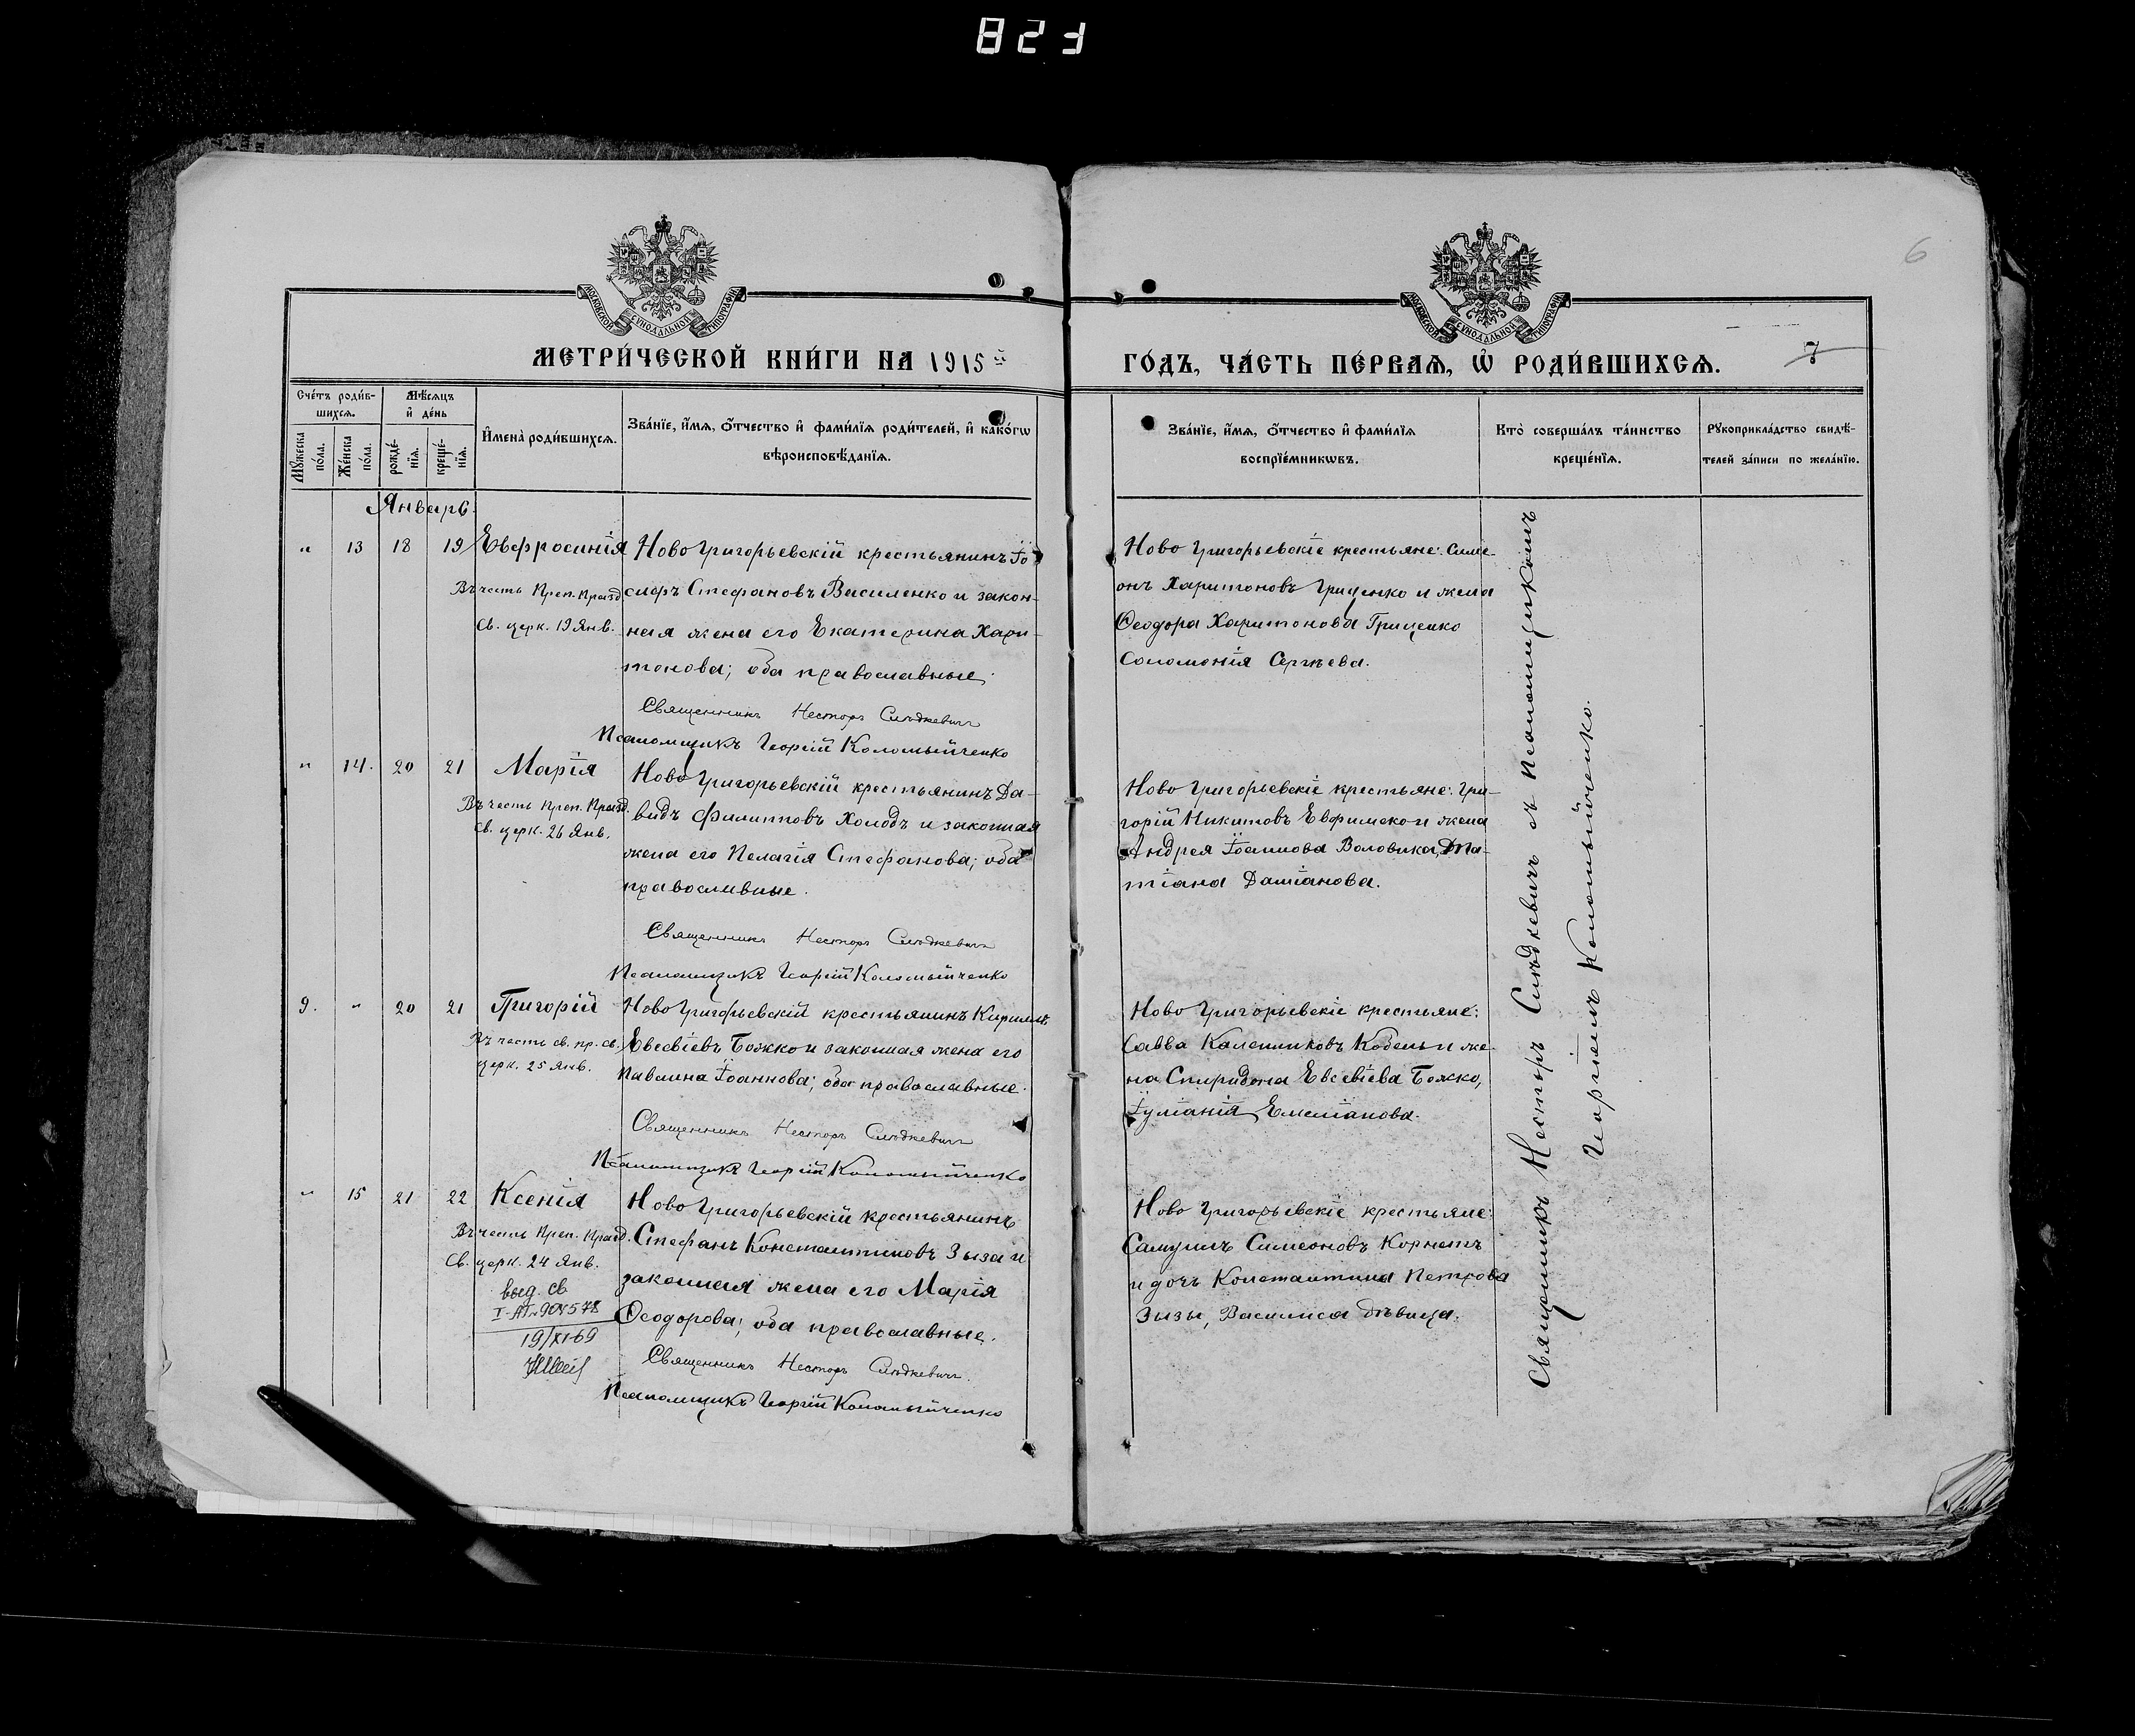 823
6
МОСКОВСКОЙ СѴНОДАЛЬНОЙ ТИПОГРАФІИ
МОСКОВСКОЙ СѴНОДАЛЬНОЙ ТИПОГРАФІИ
МЕТРИ́ЧЕСКОЙ КНИ́ГИ НА 1915й
ГО́ДЪ, ЧА́СТЬ ПЕ́РВАѦ, Ѡ҆ РОДИ́ВШИХСѦ.
7
Сче́тъ роди́в-
шихсѧ.
Мꙋ́жеска по́ла.
Же́нска по́ла.
Мѣ́сѧцъ
и҆ де́нь
рожде́-
нїѧ.
креще́-
нїѧ.
И҆мена̀ роди́вшихсѧ.
Зва́нїе, и҆́мѧ, ѻ҆́тчество и҆ фами́лїѧ роди́телей, и҆ како́гѡ
вѣроисповѣ́данїѧ.
Зва́нїе, и҆́мѧ, ѻ҆́тчество и҆ фами́лїѧ
воспрїе́мникѡвъ.
Кто̀ соверша́лъ та́инство
креще́нїѧ.
Рꙋкоприкла́дство свидѣ́-
телей за́писи по жела́нїю.
Январь.
" 13 18 19 Евфросинія
Въ честь Преп. Празд.
Св. церк. 19 Янв.
Ново Григорьевскій крестьянинъ Іо-
сифъ Стефановъ Василенко и закон-
ная жена его Екатерина Хари-
тонова; оба православные.
Священникъ Несторъ Слѣдкевичъ
Псаломщикъ Георгій Коломыйченко
Ново Григорьевскіе крестьяне: Симе-
онъ Харитоновъ Гриценко и жена
Ѳеодора Харитонова Гриценко
Соломонія Сергѣева.
" 14. 20 21 Марія
Въ честь Преп. Празд.
Св. церк. 26 Янв.
Ново Григорьевскій крестьянинъ Да-
видъ Филипповъ Холодъ и законная
жена его Пелагія Стефанова; оба
православные.
Священникъ Несторъ Слѣдкевичъ
Псаломщикъ Георгій Коломыйченко
Ново Григорьевскіе крестьяне: Гри-
горій Никитовъ и жена
Андрея Іоаннова Воловика, Та-
тіана Даміанова.
9. " 20 21 Григорій
Въ честь св. пр. св.
церк. 25 Янв.
Ново Григорьевскій крестьянинъ Кириллъ
Евсевіевъ Божко и законная жена его
Павлина Іоаннова; оба православные.
Священникъ Несторъ Слѣдкевичъ
Псаломщикъ Георгій Коломыйченко
Ново Григорьевскіе крестьяне:
Савва Каленниковъ и же-
на Спиридона Евсевіева Божко,
Іуліанія Емеліанова.
" 15 21 22 Ксенія
Въ честь Преп. Празд.
Св. церк. 24 Янв.
выд. св.
19/XI-69
Ново Григорьевскій крестьянинъ
Стефанъ Константиновъ Зыза и
законная жена его Марія
Ѳеодорова; оба православные.
Священникъ Несторъ Слѣдкевичъ.
Псаломщикъ Георгій Коломыйченко
Ново Григорьевскіе крестьяне:
Самуилъ Симеоновъ Корнетъ
и дочь Константина Петрова
Зызы, Василиса дѣвица.
Священникъ Несторъ Слѣдкевичъ съ псаломщикомъ
Георгіемъ Коломыйченко.